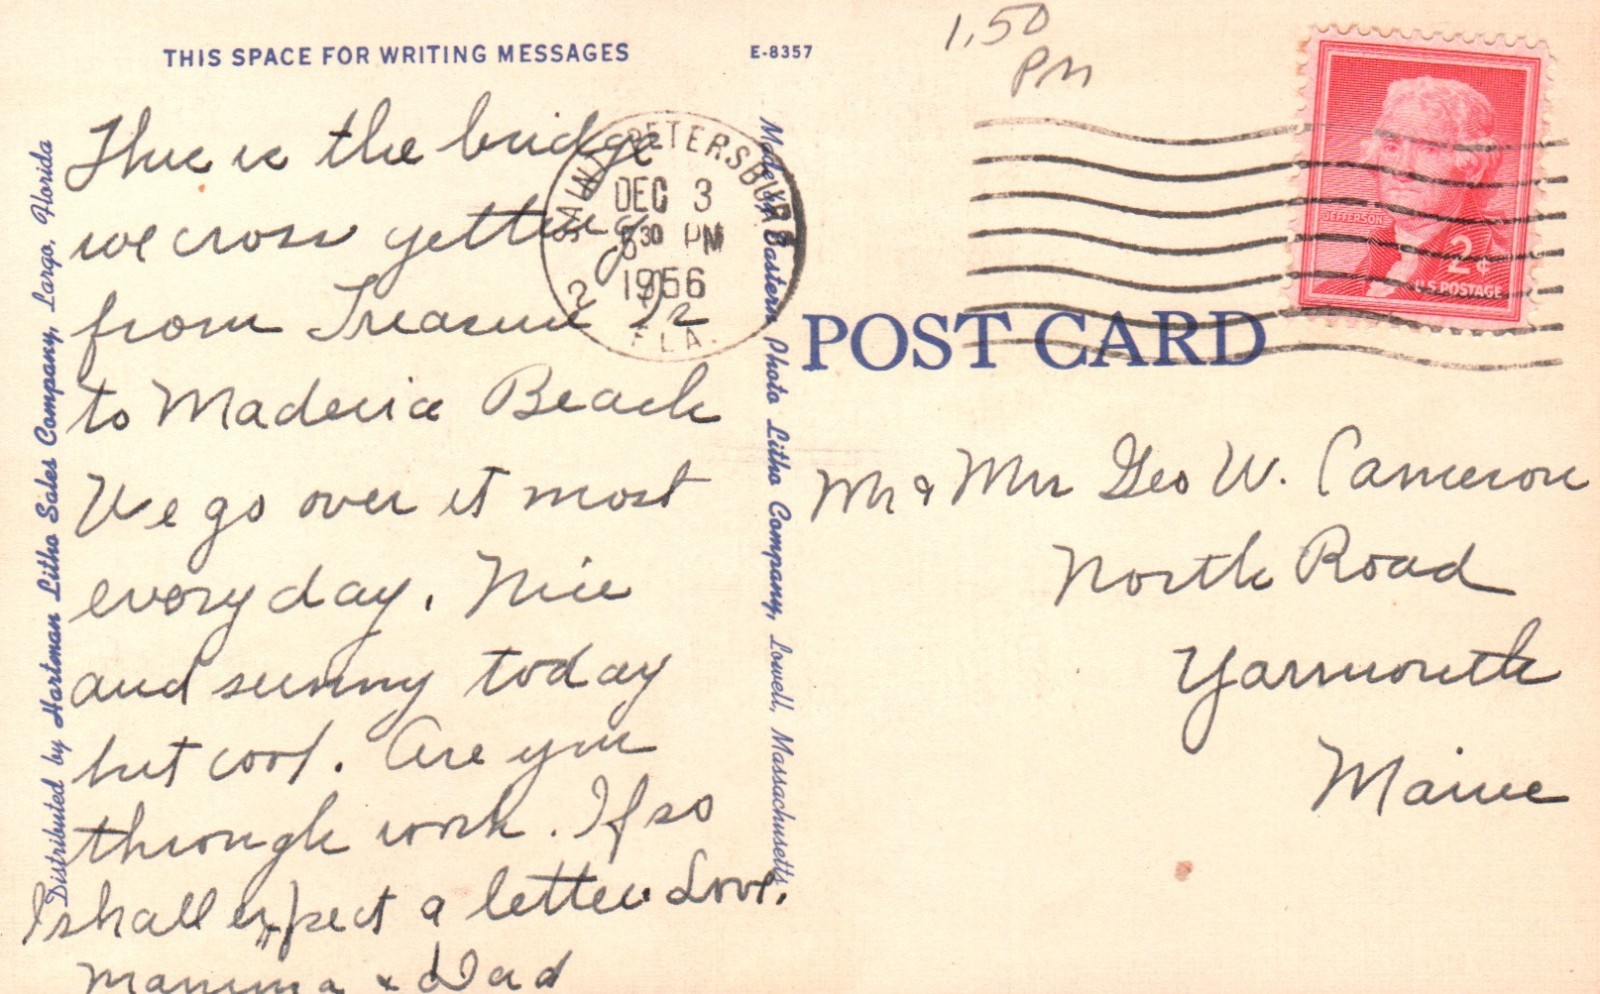 1.50
PM
THIS SPACE FOR WRITING MESSAGES
E-8357
This is the bridge
we cross getting
from Treasure Is
to Maderia Beach
We go over it most
every day. Nice
and sunny today
but cool. Are you
through work. If so
I shall expect a letter. Love,
Mamma & Dad
SAINT PETERSBURG
DEC 3
5 30 PM
1956
2
FLA.
JEFFERSON
2¢
U.S. POSTAGE
POST CARD
Mr & Mrs Geo W. Cameron
North Road
Yarmouth
Maine
Distributed by Hartman Litho Sales Company, Largo, Florida
Made by Eastern Photo Litho Company, Lowell, Massachusetts